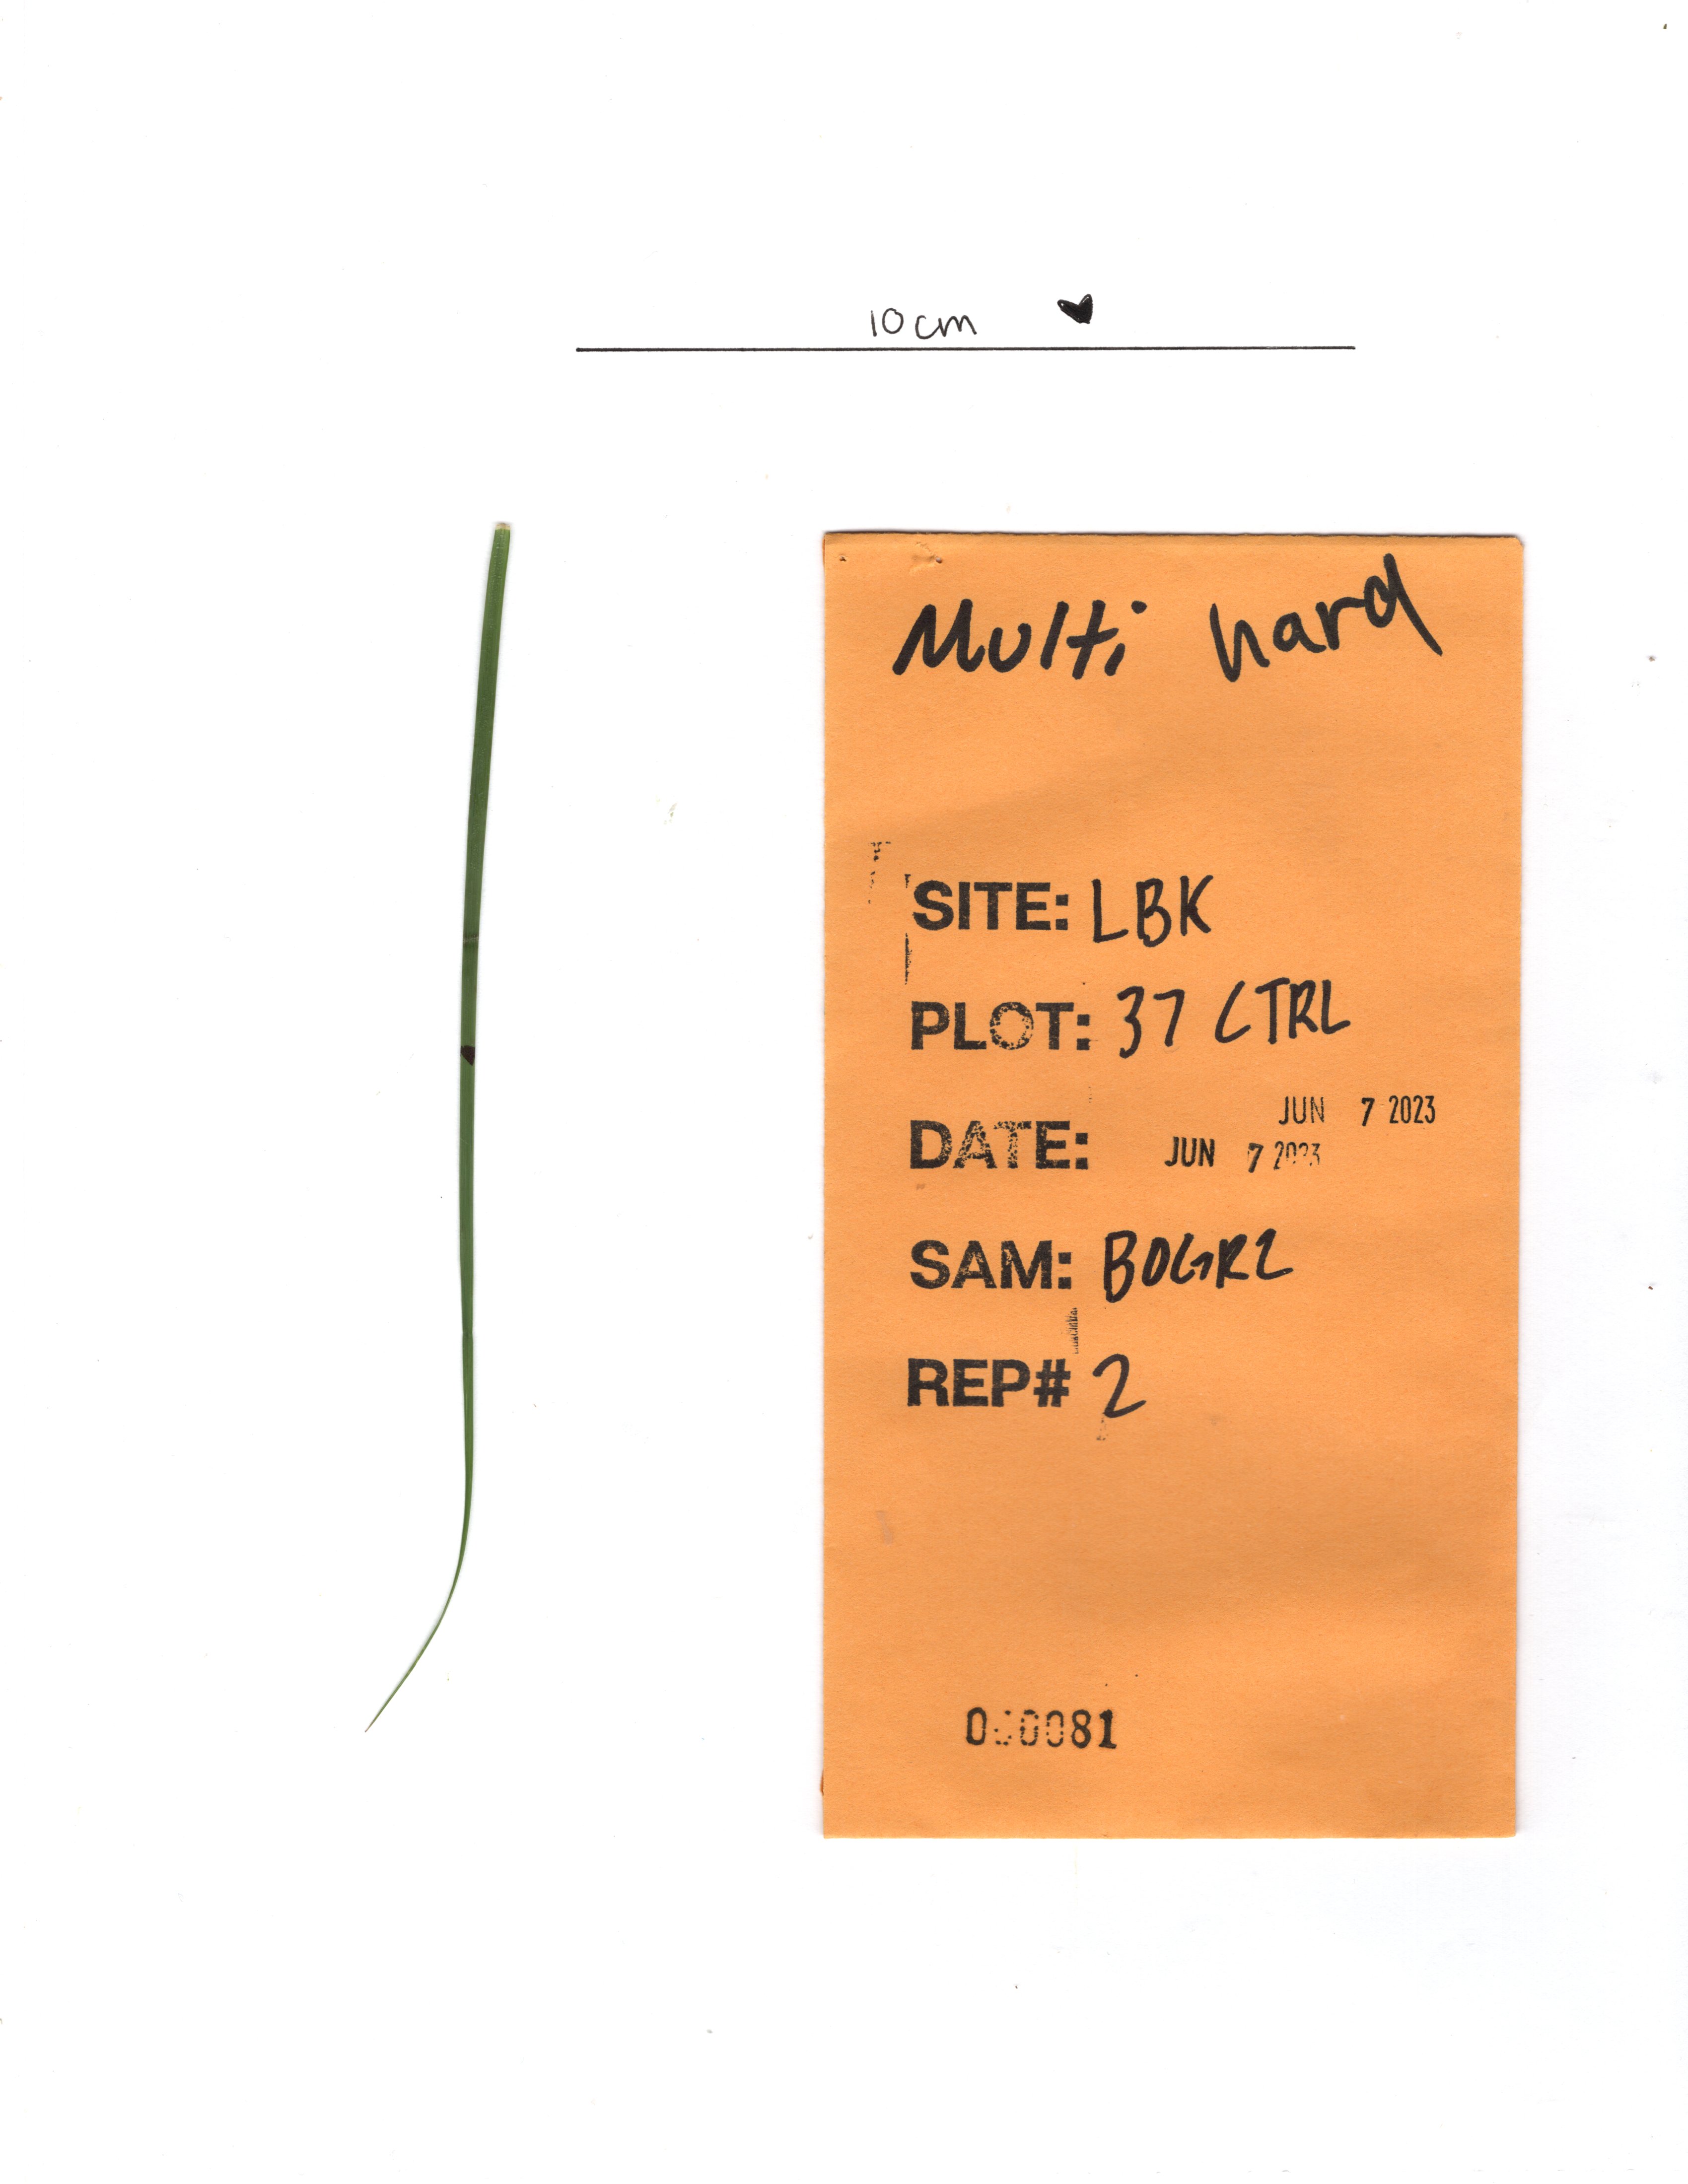 10cm
Multi hard
SITE: LBK
PLOT: 37 CTRL
JUN 7 2023
DATE: JUN 7 2023
SAM: BOGR2
REP# 2
000081